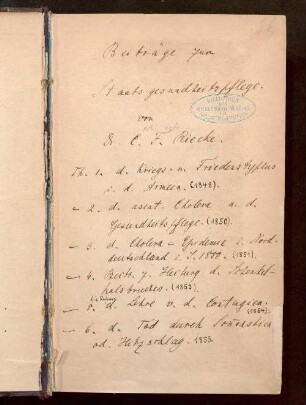 Beiträge zur
Staatsgesundheitspflege.
von
Dr. C. F. Riecke.
Th. 1. d. Kriegs- u. Friedens typhus
i. d. Armeen. (1848).
— 2. d. asiat. Cholera u. d.
Gesundheitspflege. (1850).
— 3. d. Cholera = Epidemie i. Nord
deutschland i. J. 1850. (1851).
— 4. Beitr. z. Heilung d. Schenkel=
halsbruches. (1853).
— 5. d. Lehre v. d. Contagien. (1854).
— 6. d. Tod durch Sonnenstich
od. Hitzschlag. 1855.